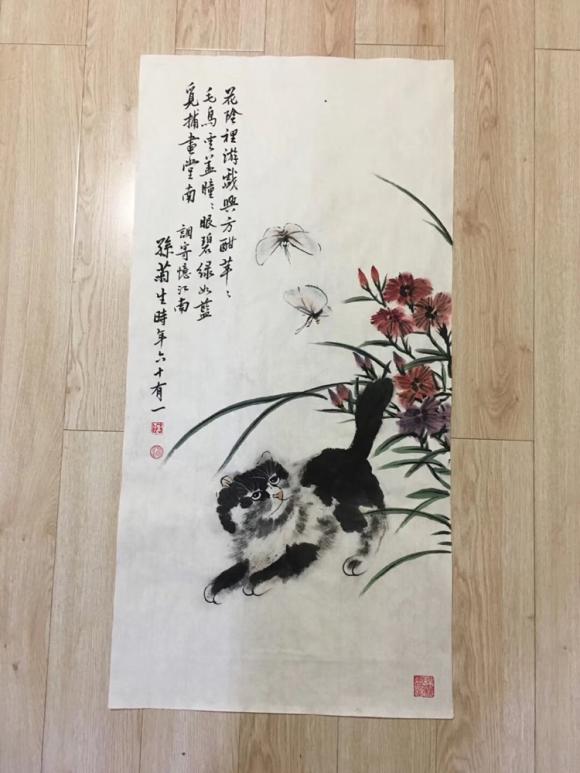 花陰裡游戲興方酣茸〻
毛烏雲盖瞳〻眼碧綠如藍
覓捕畫堂南
調寄憶江南
孫菊生時年六十有一